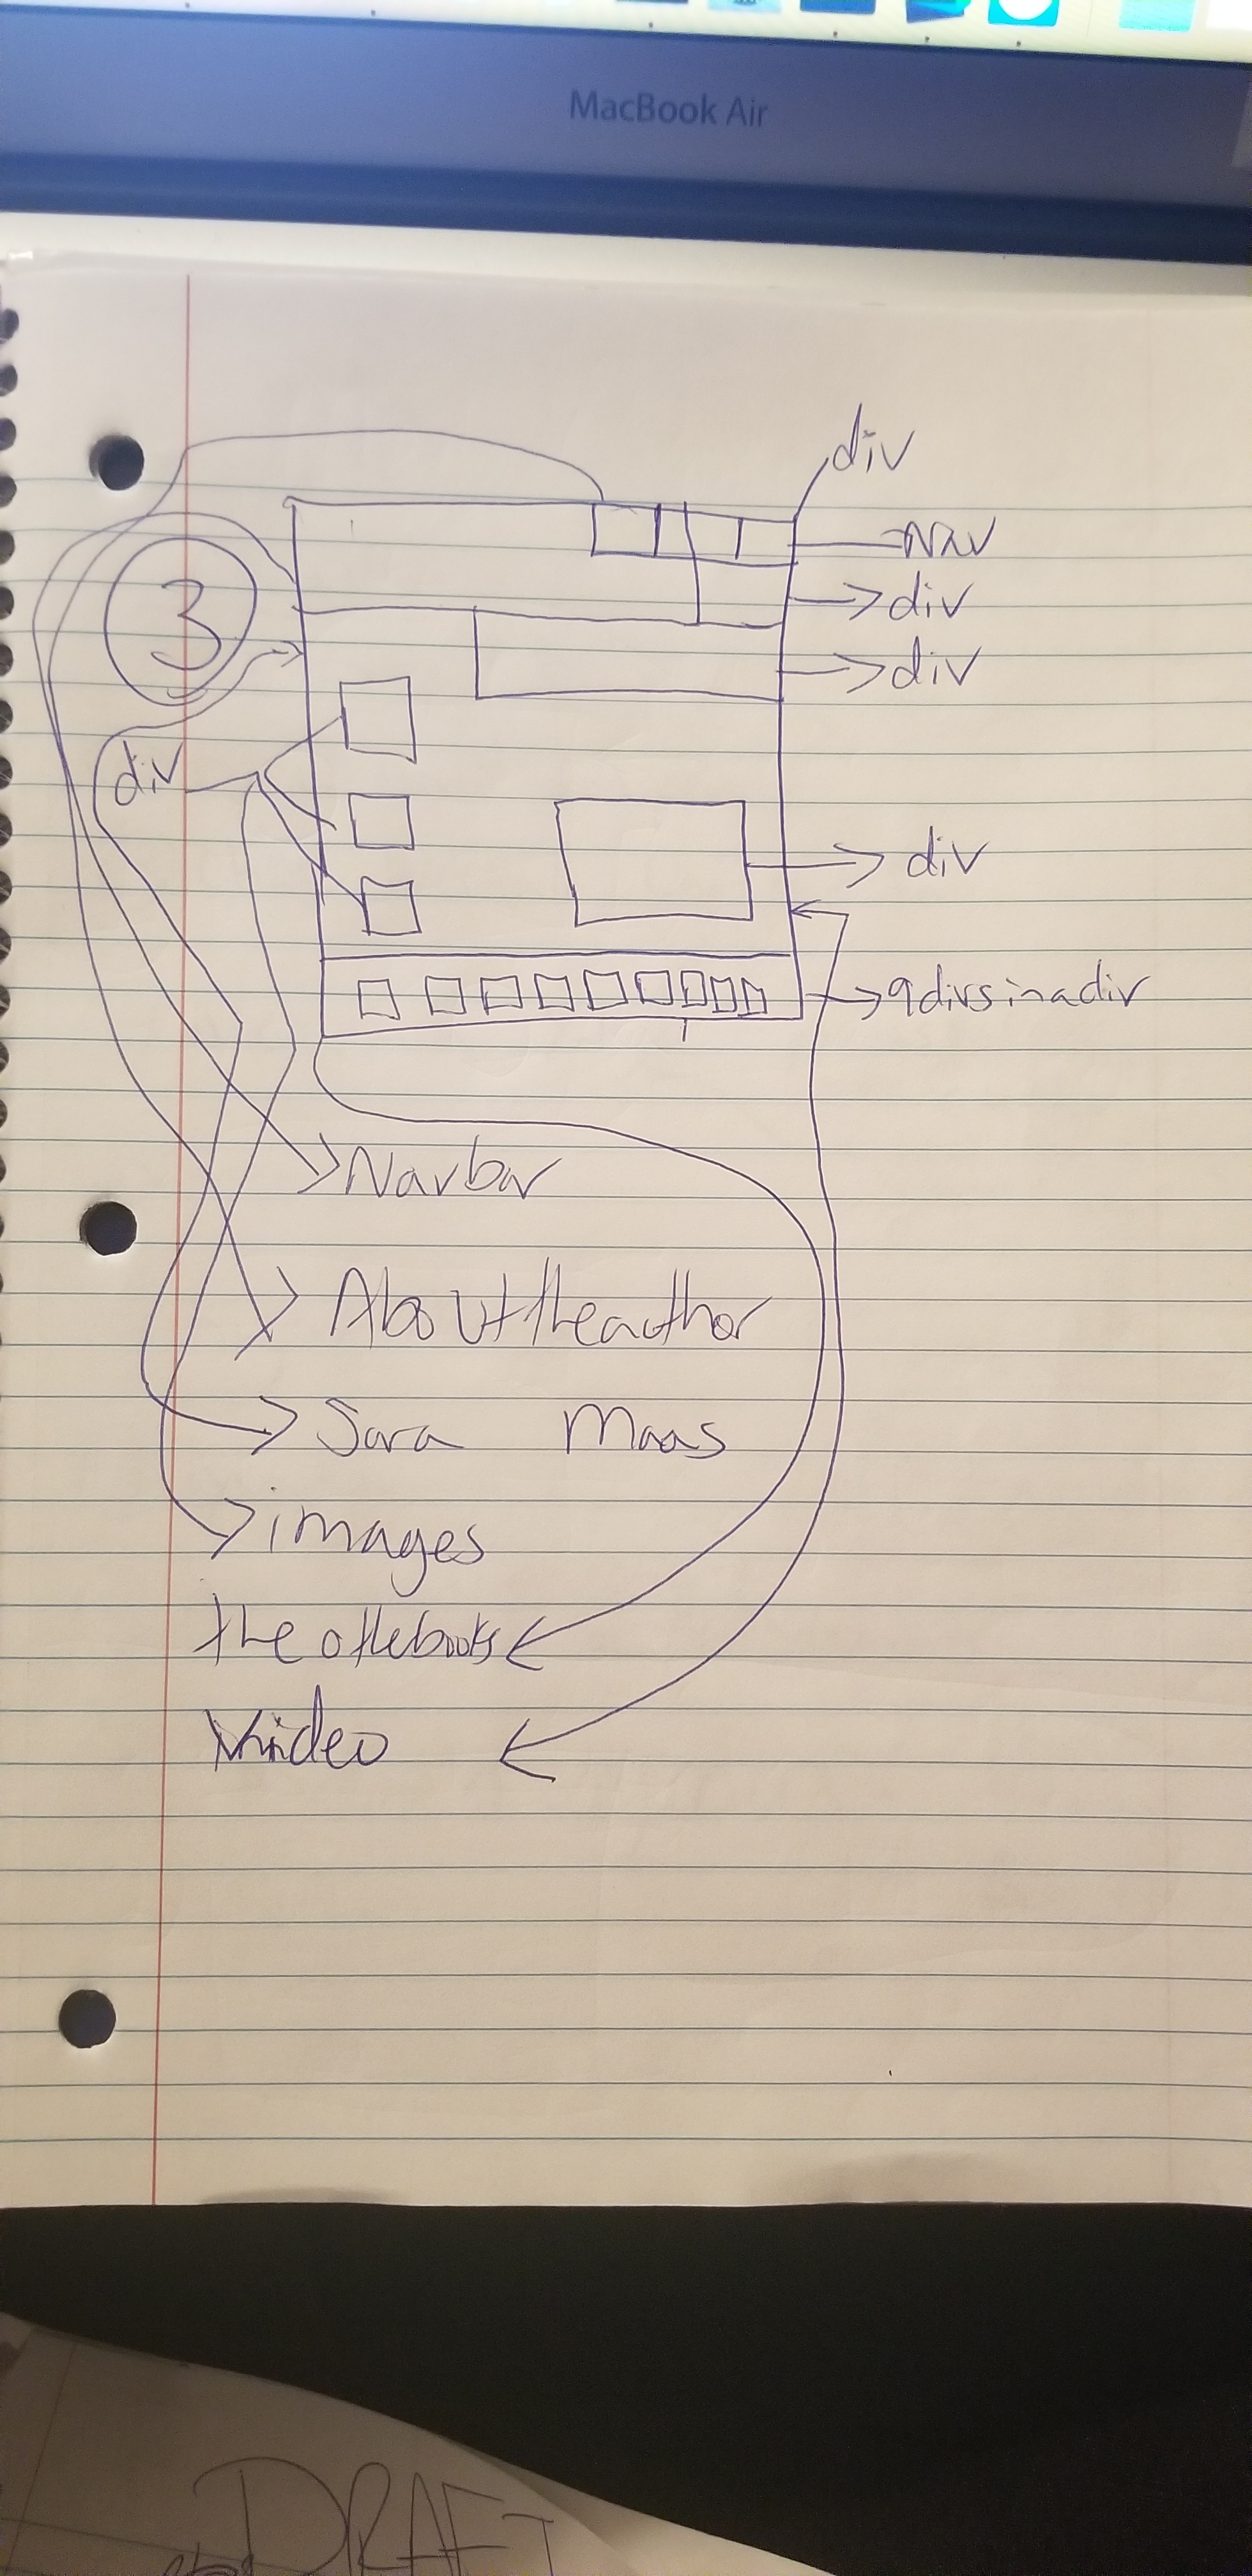 MacBook Air
div
Nav
3
div
div
div
div
9divsinadiv
Navbar
Abouttheauthor
Sara Maas
images
the othebooks
Video
DRAFT